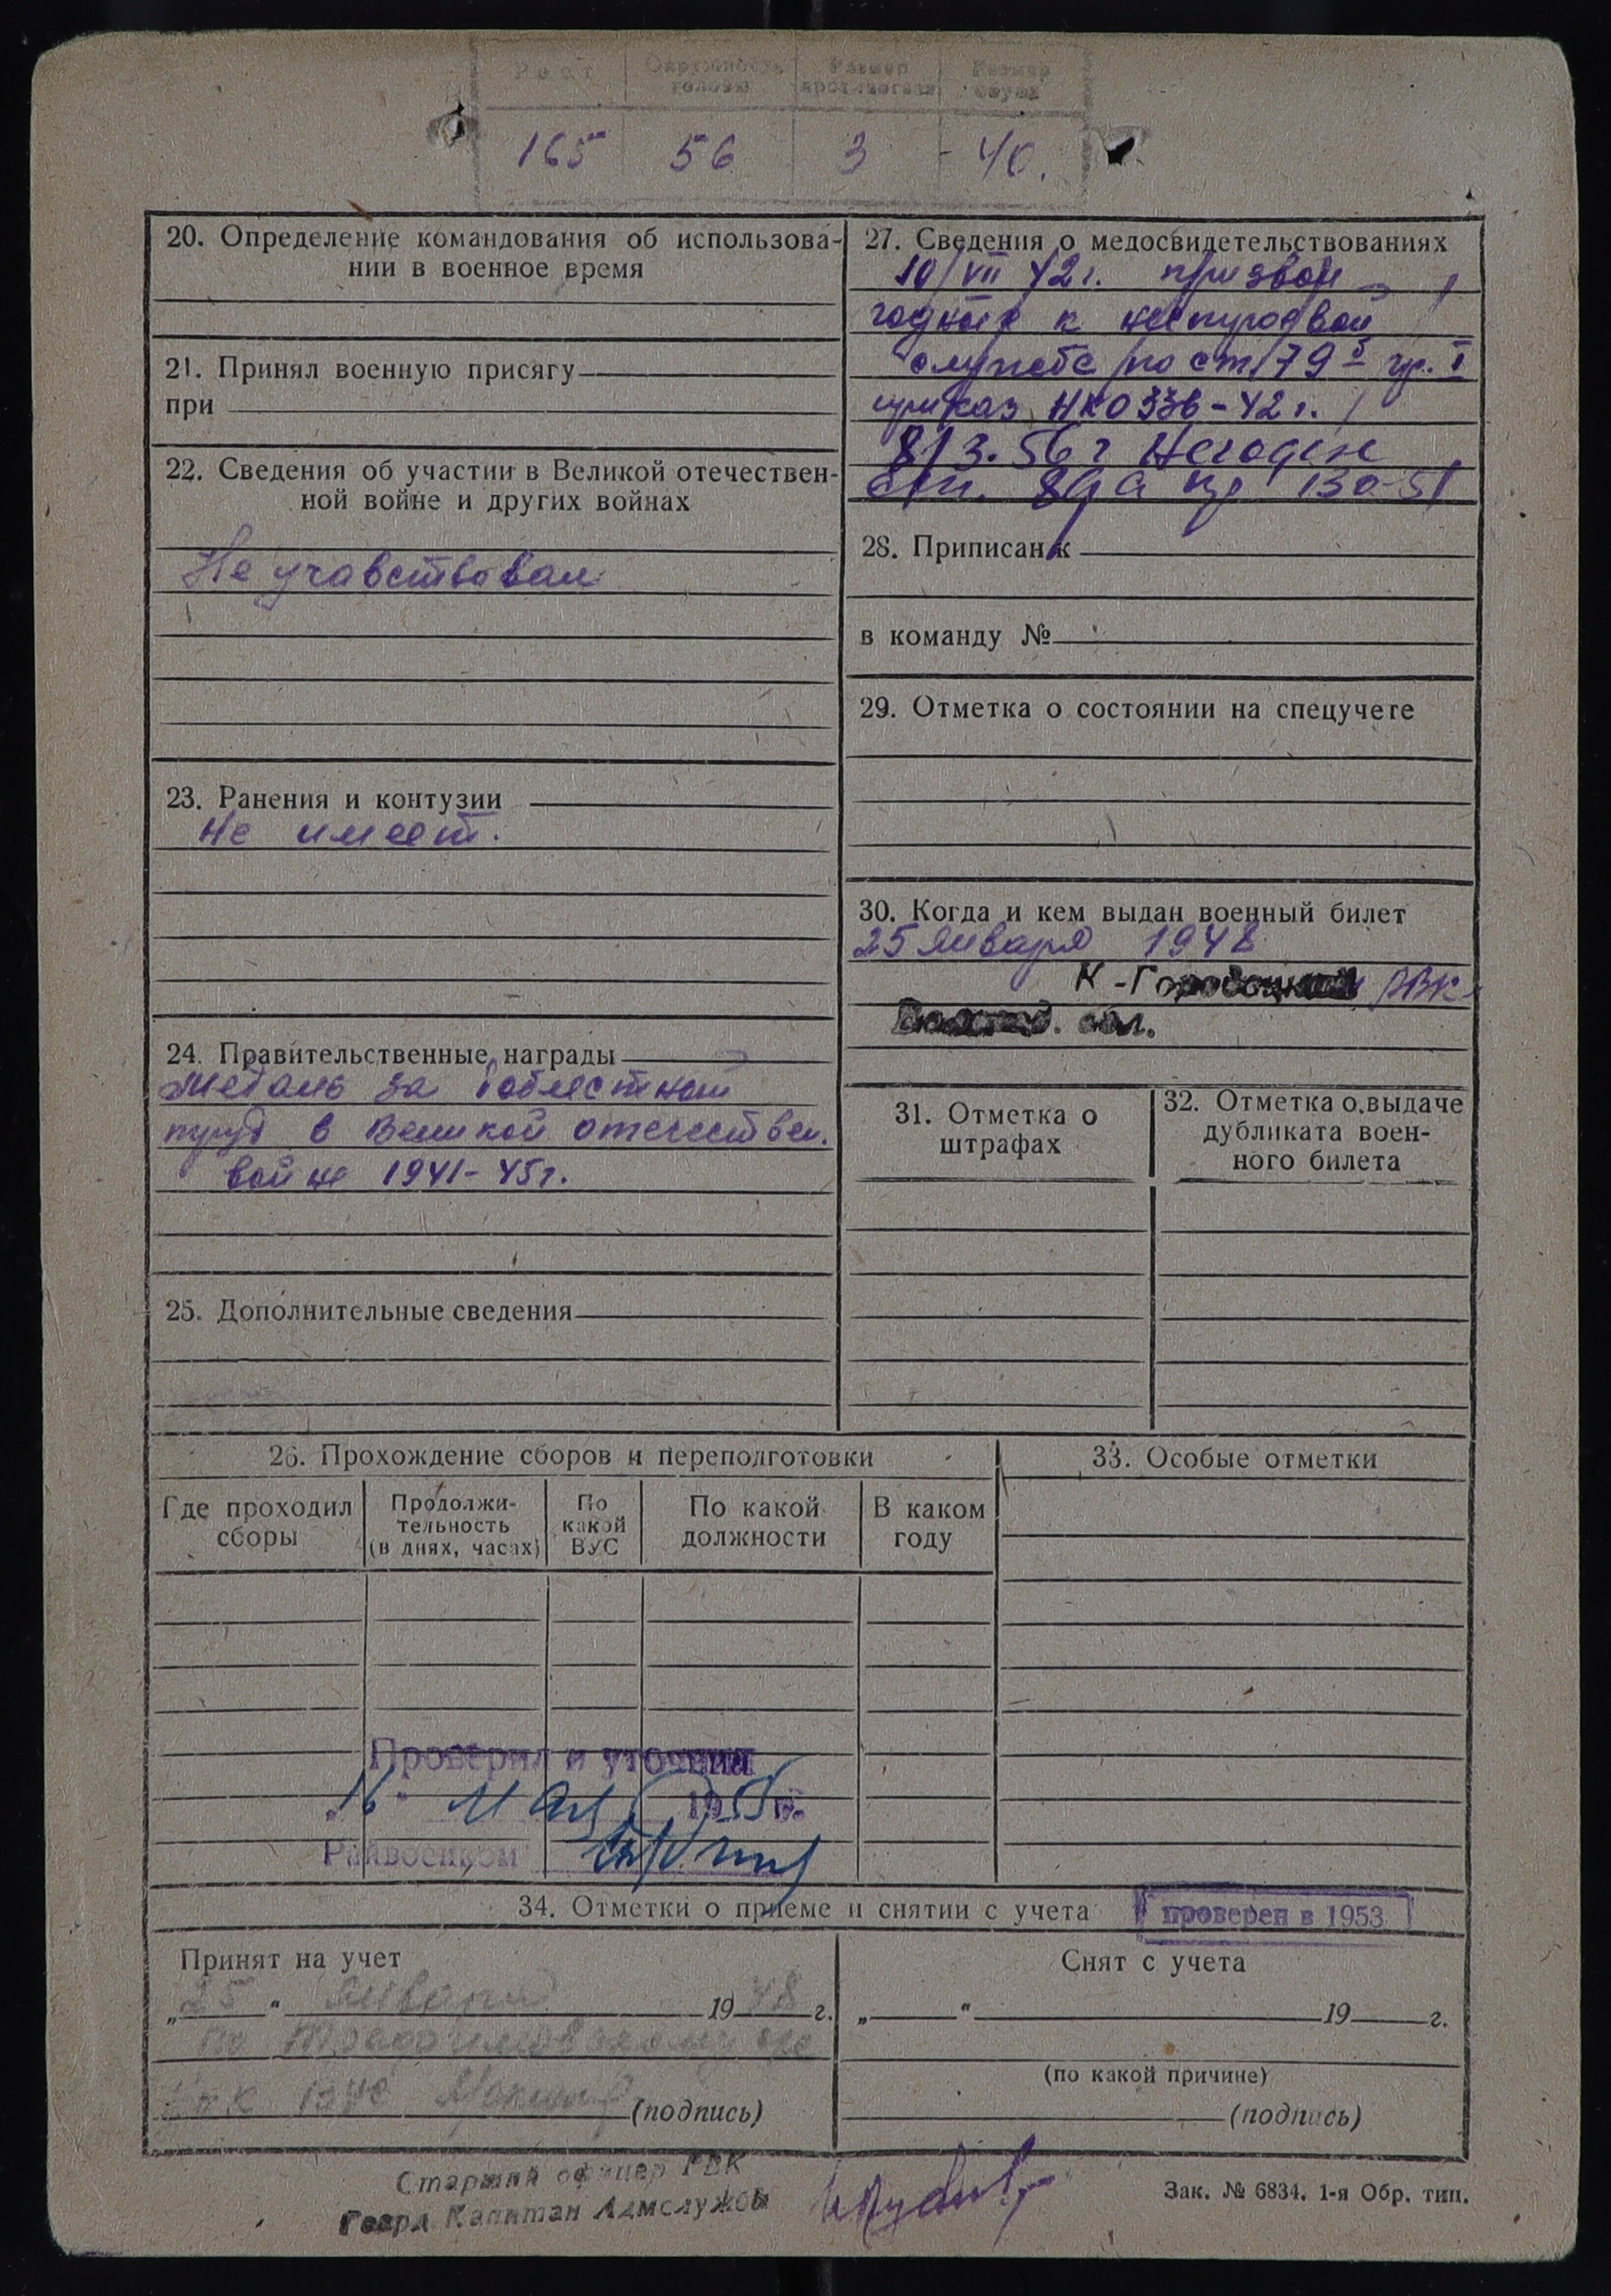 Рост Окружность головы Размер противогаза Размер обуви
165 56 3 40.
20. Определение командования об использова-
нии в военное время
21. Принял военную присягу
при
22. Сведения об участии в Великой отечествен-
ной войне и других войнах
Не учавствовал
23. Ранения и контузии
не имеет.
24. Правительственные награды
Медаль за доблестный
труд в Великой отечествен.
войне 1941-45г.
25. Дополнительные сведения
27. Сведения о медосвидетельствованиях
10/VII 42г. призвой
годный к нестроевой
службе по ст. 79 б гр. I
приказ НКО 336-42г.
8/3.56г Негоден
ст. 89а пр 130-51
28. Приписан к
в команду №
29. Отметка о состоянии на спецучете
30. Когда и кем выдан военный билет
25 января 1948
К-Городецкий РВК
обл.
31. Отметка о
штрафах
32. Отметка о выдаче
дубликата воен-
ного билета
26. Прохождение сборов и переподготовки
Где проходил
сборы
Продолжи-
тельность
(в днях, часах)
По
какой
ВУС
По какой
должности
В каком
году
33. Особые отметки
Проверил и уточнил
„16" мая 1955 г.
Райвоенком
34. Отметки о приеме и снятии с учета
проверен в 1953
Принят на учет
„25" января 1948 г.
по
(подпись)
Снят с учета
„ " 19 г.
(по какой причине)
(подпись)
Старший офицер РВК
Гвард. Капитан Адмслужбы
Зак. № 6834. 1-я Обр. тип.